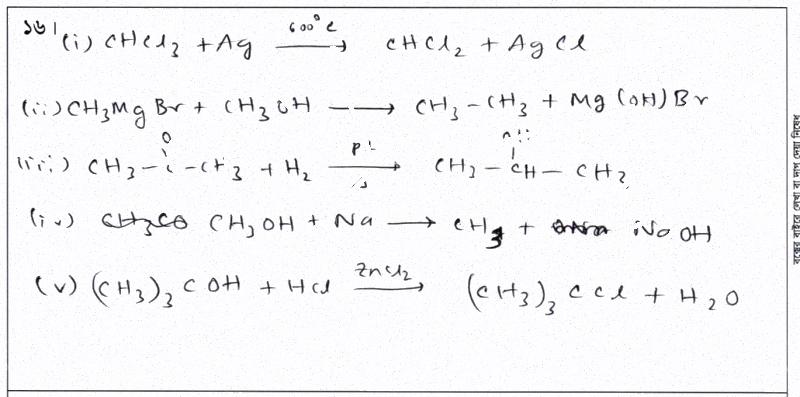 ১৬।
(i) CHCl3 + Ag 600°C → CHCl2 + AgCl
(ii) CH3MgBr + CH3OH → CH3-CH3 + Mg(OH)Br
O
(iii) CH3-C-CH3 + H2 → CH3-CH-CH3
(iv) CH3CO CH3OH + Na → CH3 + NaOH
(v) (CH3)3COH + HCl ZnCl2 → (CH3)3CCl + H2O